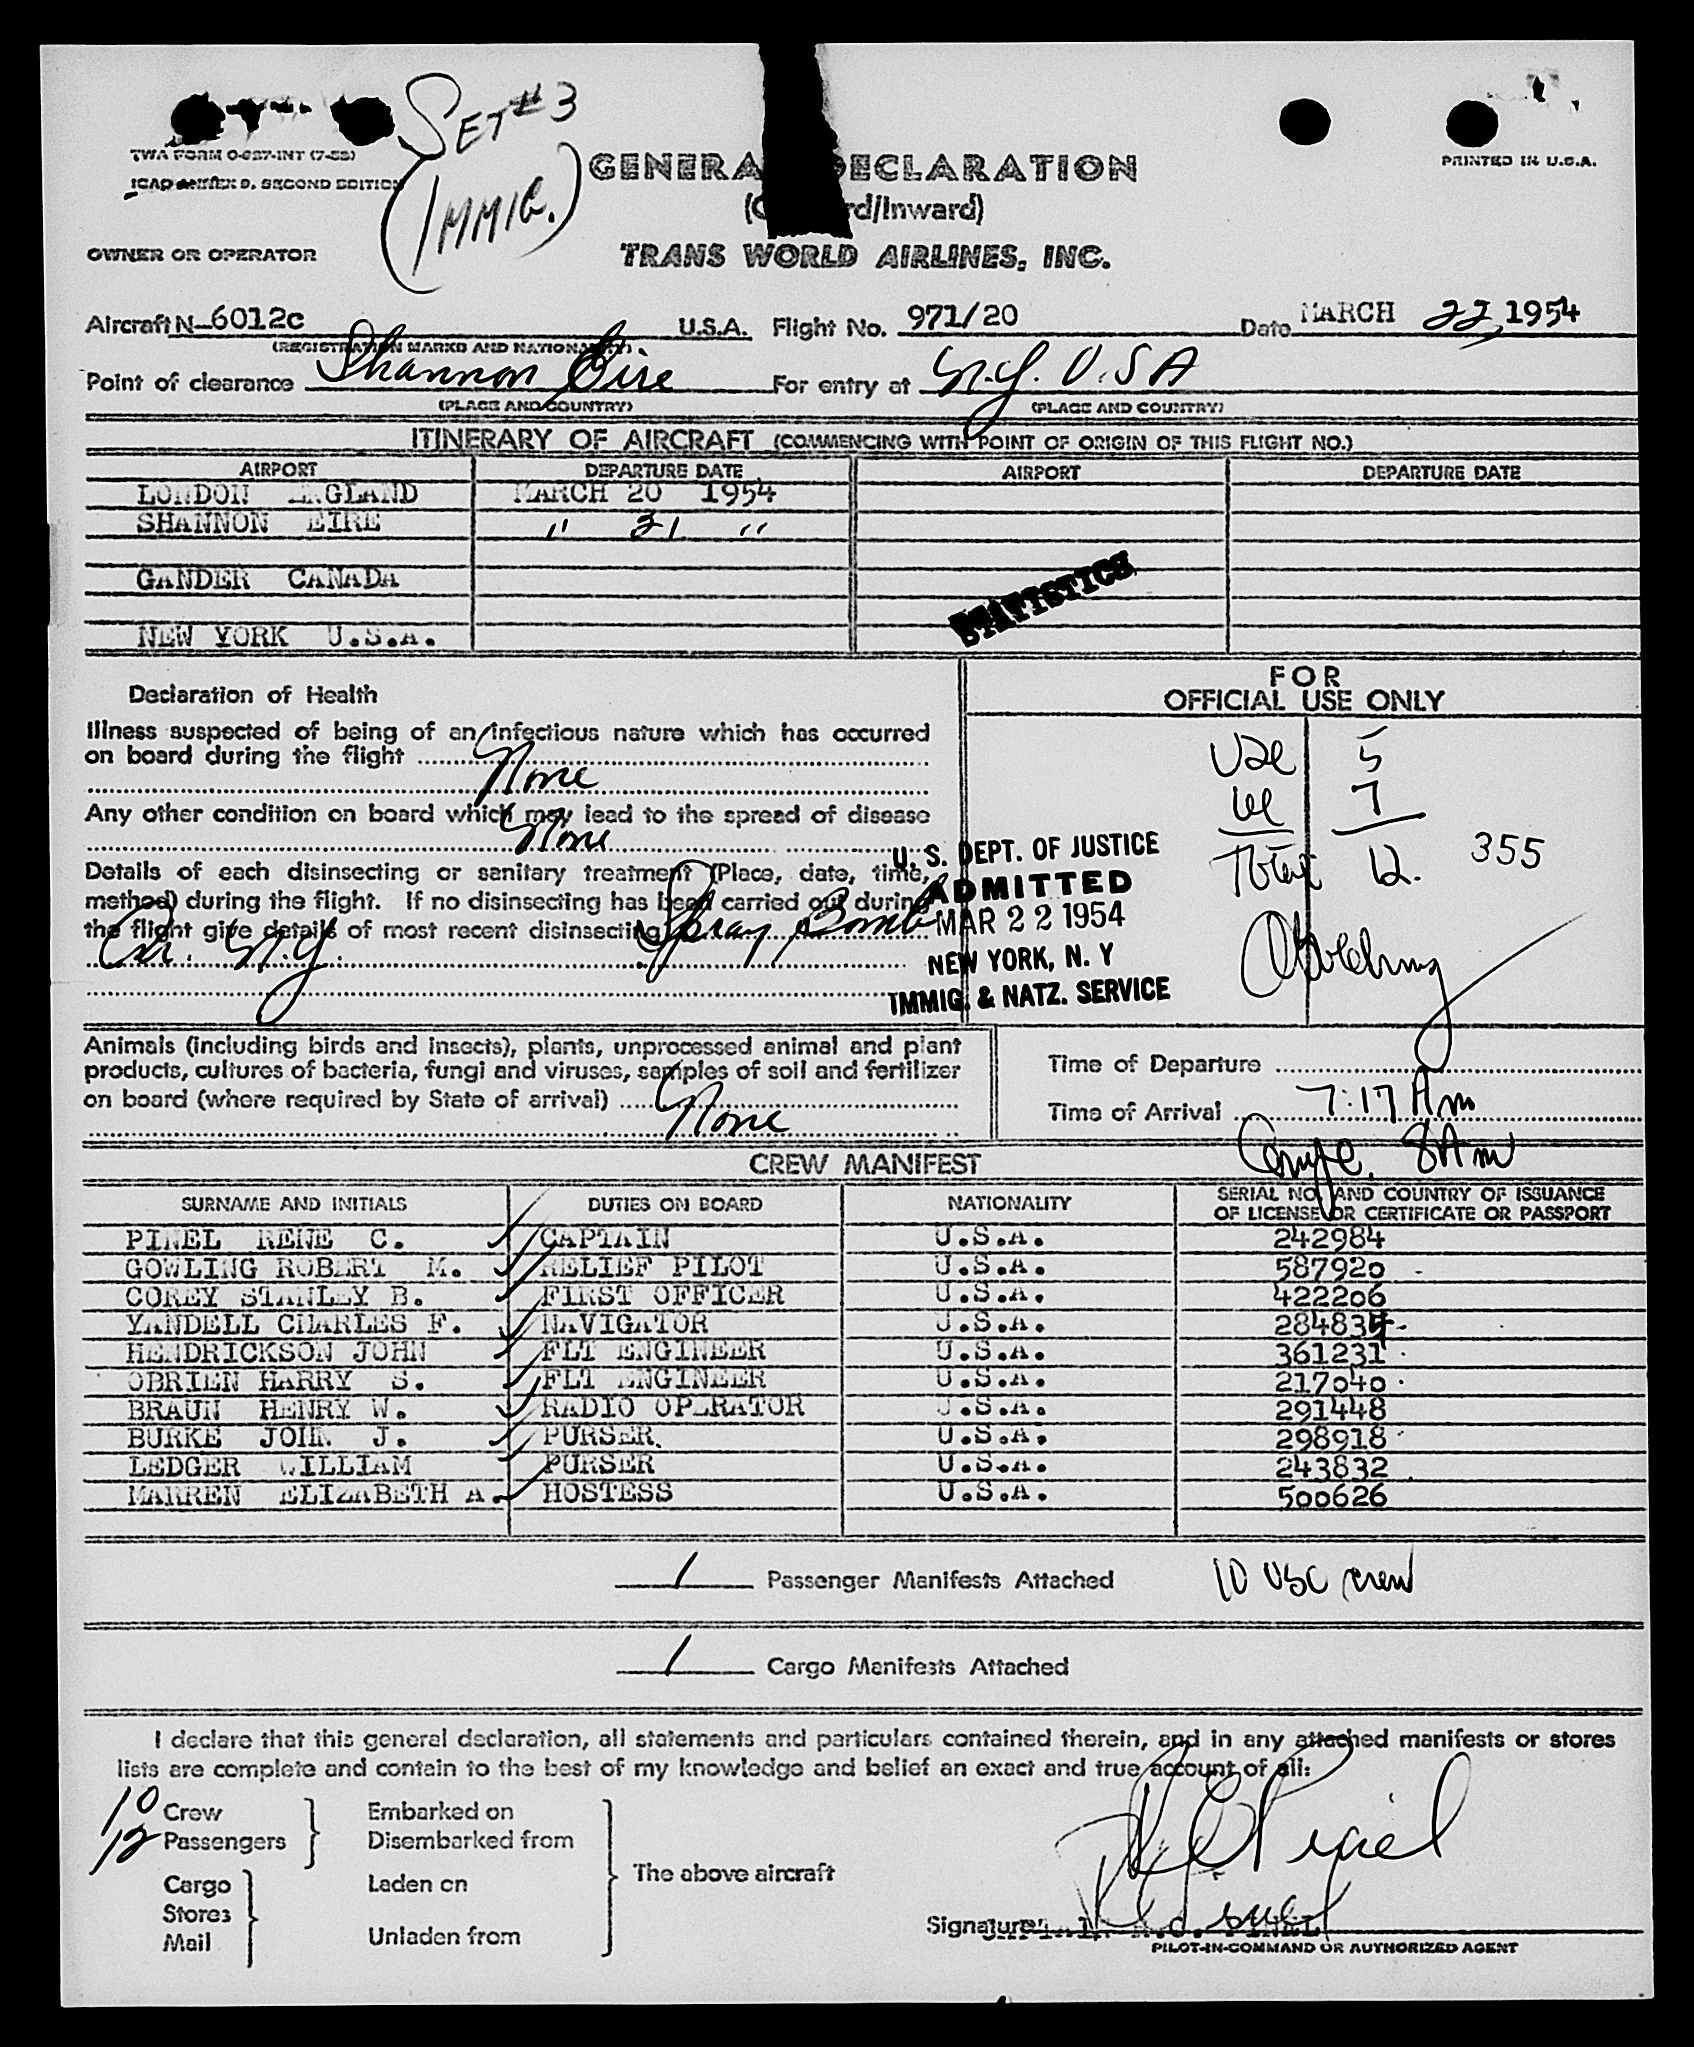 SET #3
(IMMIG.)
TWA FORM O-
ICAO ANNEX 9, SECOND EDITION
PRINTED IN U.S.A.
GENERA DECLARATION
rd/Inward)
OWNER OR OPERATOR TRANS WORLD AIRLINES, INC.
Aircraft N-6012c U.S.A. Flight No. 971/20 Date MARCH 22, 1954
(REGISTRATION MARKS AND NATIONALITY)
Point of clearance Shannon Eire For entry at N.Y. U.S.A
(PLACE AND COUNTRY) (PLACE AND COUNTRY)
ITINERARY OF AIRCRAFT (COMMENCING WITH POINT OF ORIGIN OF THIS FLIGHT NO.)
AIRPORT DEPARTURE DATE AIRPORT DEPARTURE DATE
LONDON ENGLAND MARCH 20 1954
SHANNON EIRE " 21 "
GANDER CANADA
STATISTICS
NEW YORK U.S.A.
Declaration of Health
Illness suspected of being of an infectious nature which has occurred
on board during the flight
None
Any other condition on board which may lead to the spread of disease
None
Details of each disinsecting or sanitary treatment (Place, date, time,
method) during the flight. If no disinsecting has been carried out during
the flight give details of most recent disinsecting Spray Bomb
N.Y.
FOR
OFFICIAL USE ONLY
5
7
Total 12. 355
U. S. DEPT. OF JUSTICE
ADMITTED
MAR 22 1954
NEW YORK, N. Y
IMMIG. & NATZ. SERVICE
Animals (including birds and insects), plants, unprocessed animal and plant
products, cultures of bacteria, fungi and viruses, samples of soil and fertilizer
on board (where required by State of arrival)
None
Time of Departure
Time of Arrival 7:17 Am
8 Am
CREW MANIFEST
SURNAME AND INITIALS DUTIES ON BOARD NATIONALITY SERIAL NO. AND COUNTRY OF ISSUANCE
OF LICENSE OR CERTIFICATE OR PASSPORT
PINEL RENE C. CAPTAIN U.S.A. 242984
GOWLING ROBERT M. RELIEF PILOT U.S.A. 587920
COREY STANLEY B. FIRST OFFICER U.S.A. 422206
YANDELL CHARLES F. NAVIGATOR U.S.A. 284834
HENDRICKSON JOHN FLT ENGINEER U.S.A. 361231
OBRIEN HARRY S. FLT ENGINEER U.S.A. 217040
BRAUN HENRY W. RADIO OPERATOR U.S.A. 291448
BURKE JOHN J. PURSER U.S.A. 298918
LEDGER WILLIAM PURSER U.S.A. 243832
MARREN ELIZABETH A. HOSTESS U.S.A. 500626
1 Passenger Manifests Attached 10 USC crew
1 Cargo Manifests Attached
I declare that this general declaration, all statements and particulars contained therein, and in any attached manifests or stores
lists are complete and contain to the best of my knowledge and belief an exact and true account of all:
10 Crew
12 Passengers
Cargo
Stores
Mail
Embarked on
Disembarked from
Laden on
Unladen from
The above aircraft
R C Pinel
R C Pinel
Signature CAPTAIN R.C. PINEL
PILOT-IN-COMMAND OR AUTHORIZED AGENT